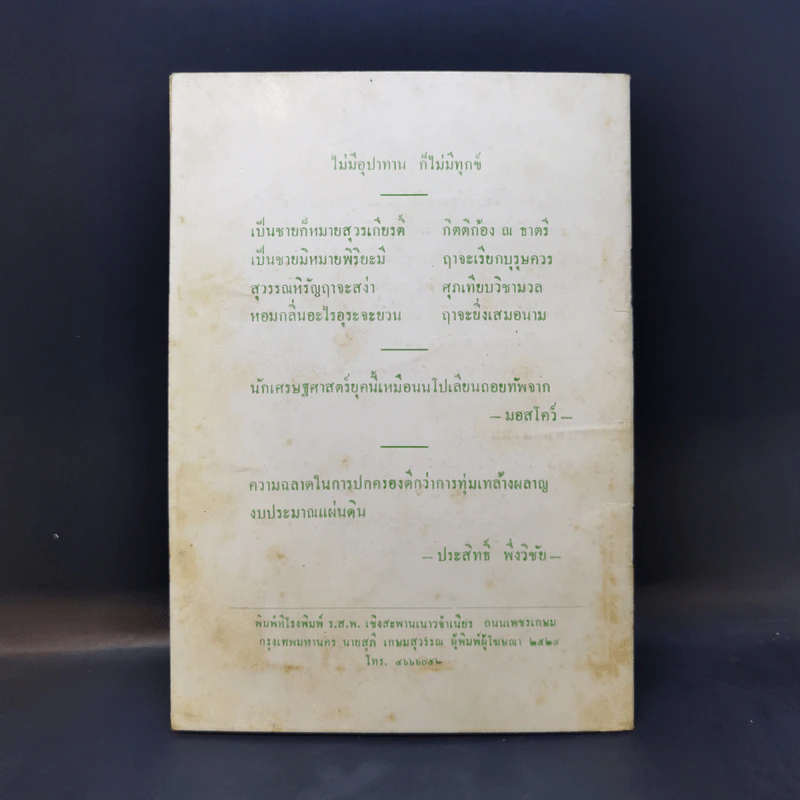 ไม่มีอุปาทาน ก็ไม่มีทุกข์
เป็นชายก็หมายสุวรเกียรติ์ กิตติก้อง ณ ธาตรี
เป็นชวยมิหมายพิริยะมี ฤาจะเรียกบุรุษควร
สุวรรณหิรัญฤาจะสง่า ศุภเทียบวิชามวล
หอมกลิ่นอะไรอุระจะยวน ฤาจะยิ่งเสมอนาม
นักเศรษฐศาสตร์ยุคนี้เหมือนนโปเลียนถอยทัพจาก
– มอสโคว์ –
ความฉลาดในการปกครองดีกว่าการทุ่มเทล้างผลาญ
งบประมาณแผ่นดิน
– ประสิทธิ์ พึ่งวิชัย –
พิมพ์ที่โรงพิมพ์ ร.ส.พ. เชิงสะพานเนาวจำเนียร ถนนเพชรเกษม
กรุงเทพมหานคร นายสุภี เกษมสุวรรณ ผู้พิมพ์ผู้โฆษณา
โทร. ๔๖๖๖๐๕๒